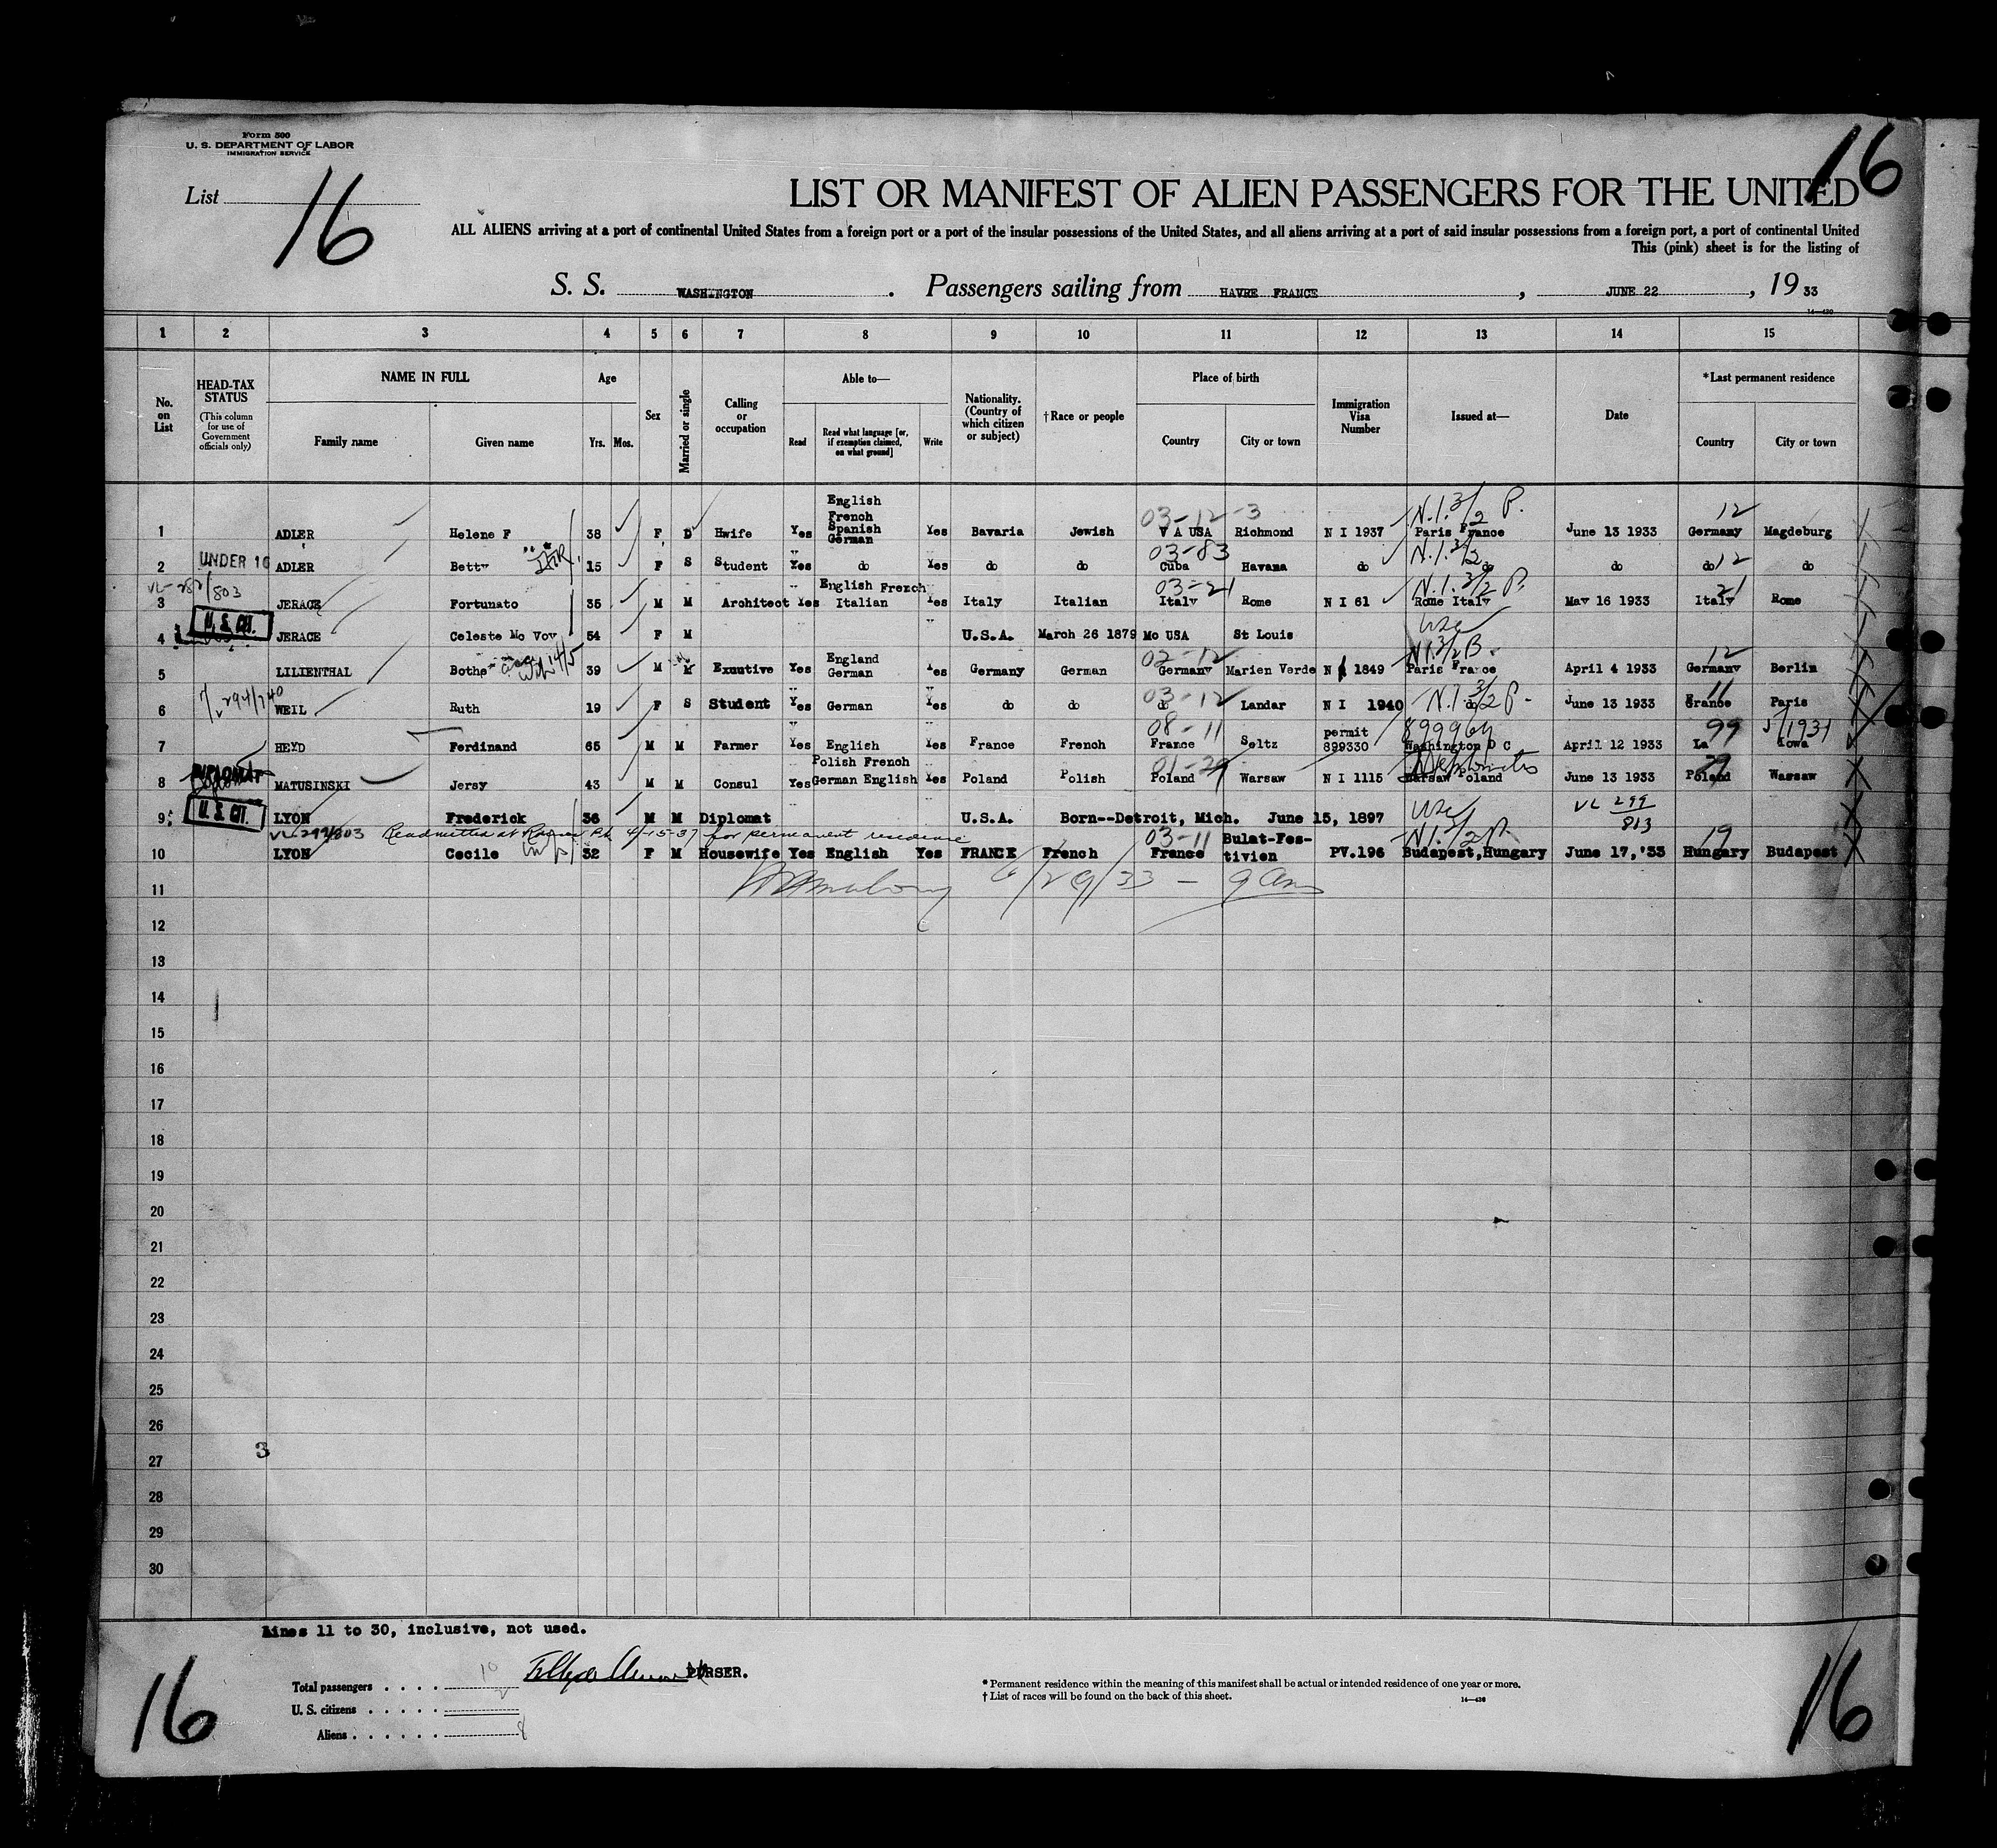 Form 500
U. S. DEPARTMENT OF LABOR
IMMIGRATION SERVICE
16
List
16
LIST OR MANIFEST OF ALIEN PASSENGERS FOR THE UNITED
ALL ALIENS arriving at a port of continental United States from a foreign port or a port of the insular possessions of the United States, and all aliens arriving at a port of said insular possessions from a foreign port, a port of continental United
This (pink) sheet is for the listing of
S. S. WASHINGTON . Passengers sailing from HAVRE FRANCE , JUNE 22 , 19 33
14—430
1 2 3 4 5 6 7 8 9 10 11 12 13 14 15
No. on List
HEAD-TAX STATUS (This column for use of Government officials only)
NAME IN FULL
Family name
Given name
Age
Yrs. Mos.
Sex
Married or single
Calling or occupation
Able to—
Read
Read what language [or, if exemption claimed, on what ground]
Write
Nationality. (Country of which citizen or subject)
†Race or people
Place of birth
Country
City or town
Immigration Visa Number
Issued at—
Date
*Last permanent residence
Country
City or town
1 ADLER Helene F 38 F D Hwife Yes English French Spanish German Yes Bavaria Jewish 03-12-3 V A USA Richmond N I 1937 N.I.3/2 P. Paris France June 13 1933 12 Germany Magdeburg
2 UNDER 16 ADLER Betty 15 F S Student Yes do Yes do do 03-83 Cuba Havana do N.I.3/2 do do 12 do do
3 803 JERACE Fortunato 35 M M Architect Yes English French Italian Yes Italy Italian 03-21 Italy Rome N I 61 N.I.3/2 P. Rome Italy May 16 1933 21 Italy Rome
4 U. S. CIT. JERACE Celeste Mc Voy 54 F M U.S.A. March 26 1879 Mo USA St Louis USC
5 LILIENTHAL Bothe 14/5 39 M M Exutive Yes England German Yes Germany German 02-12 Germany Marien Verde N I 1849 N.I.3/2 B. Paris France April 4 1933 12 Germany Berlin
6 294/740 WEIL Ruth 19 F S Student Yes German Yes do do 03-12 do Landar N I 1940 N.I.3/2 P. do June 13 1933 11 France Paris
7 HEYD Ferdinand 65 M M Farmer Yes English Yes France French 08-11 France Seltz permit 899330 899964 Washington D C April 12 1933 99 La 5/1931 Iowa
8 DIPLOMAT MATUSINSKI Jersy 43 M M Consul Yes Polish French German English Yes Poland Polish 01-29 Poland Warsaw N I 1115 Warsaw Poland June 13 1933 29 Poland Warsaw
9 U. S. CIT. LYON Frederick 36 M M Diplomat U.S.A. Born--Detroit, Mich. June 15, 1897 USC VL 299/813
VL 299/803 Readmitted at 4/15-37 for permanent residence
10 LYON Cecile 32 F M Housewife Yes English Yes FRANCE French 03-11 France Bulat-Festivien PV.196 N.I.3/2 P. Budapest,Hungary June 17,'33 19 Hungary Budapest
11 6/29/33 — 9 am
12
13
14
15
16
17
18
19
20
21
22
23
24
25
26
3
27
28
29
30
Lines 11 to 30, inclusive, not used.
PURSER.
Total passengers . . . . 10
U. S. citizens . . . . . 2
Aliens . . . . . . 8
* Permanent residence within the meaning of this manifest shall be actual or intended residence of one year or more.
† List of races will be found on the back of this sheet.
14—430
16
16